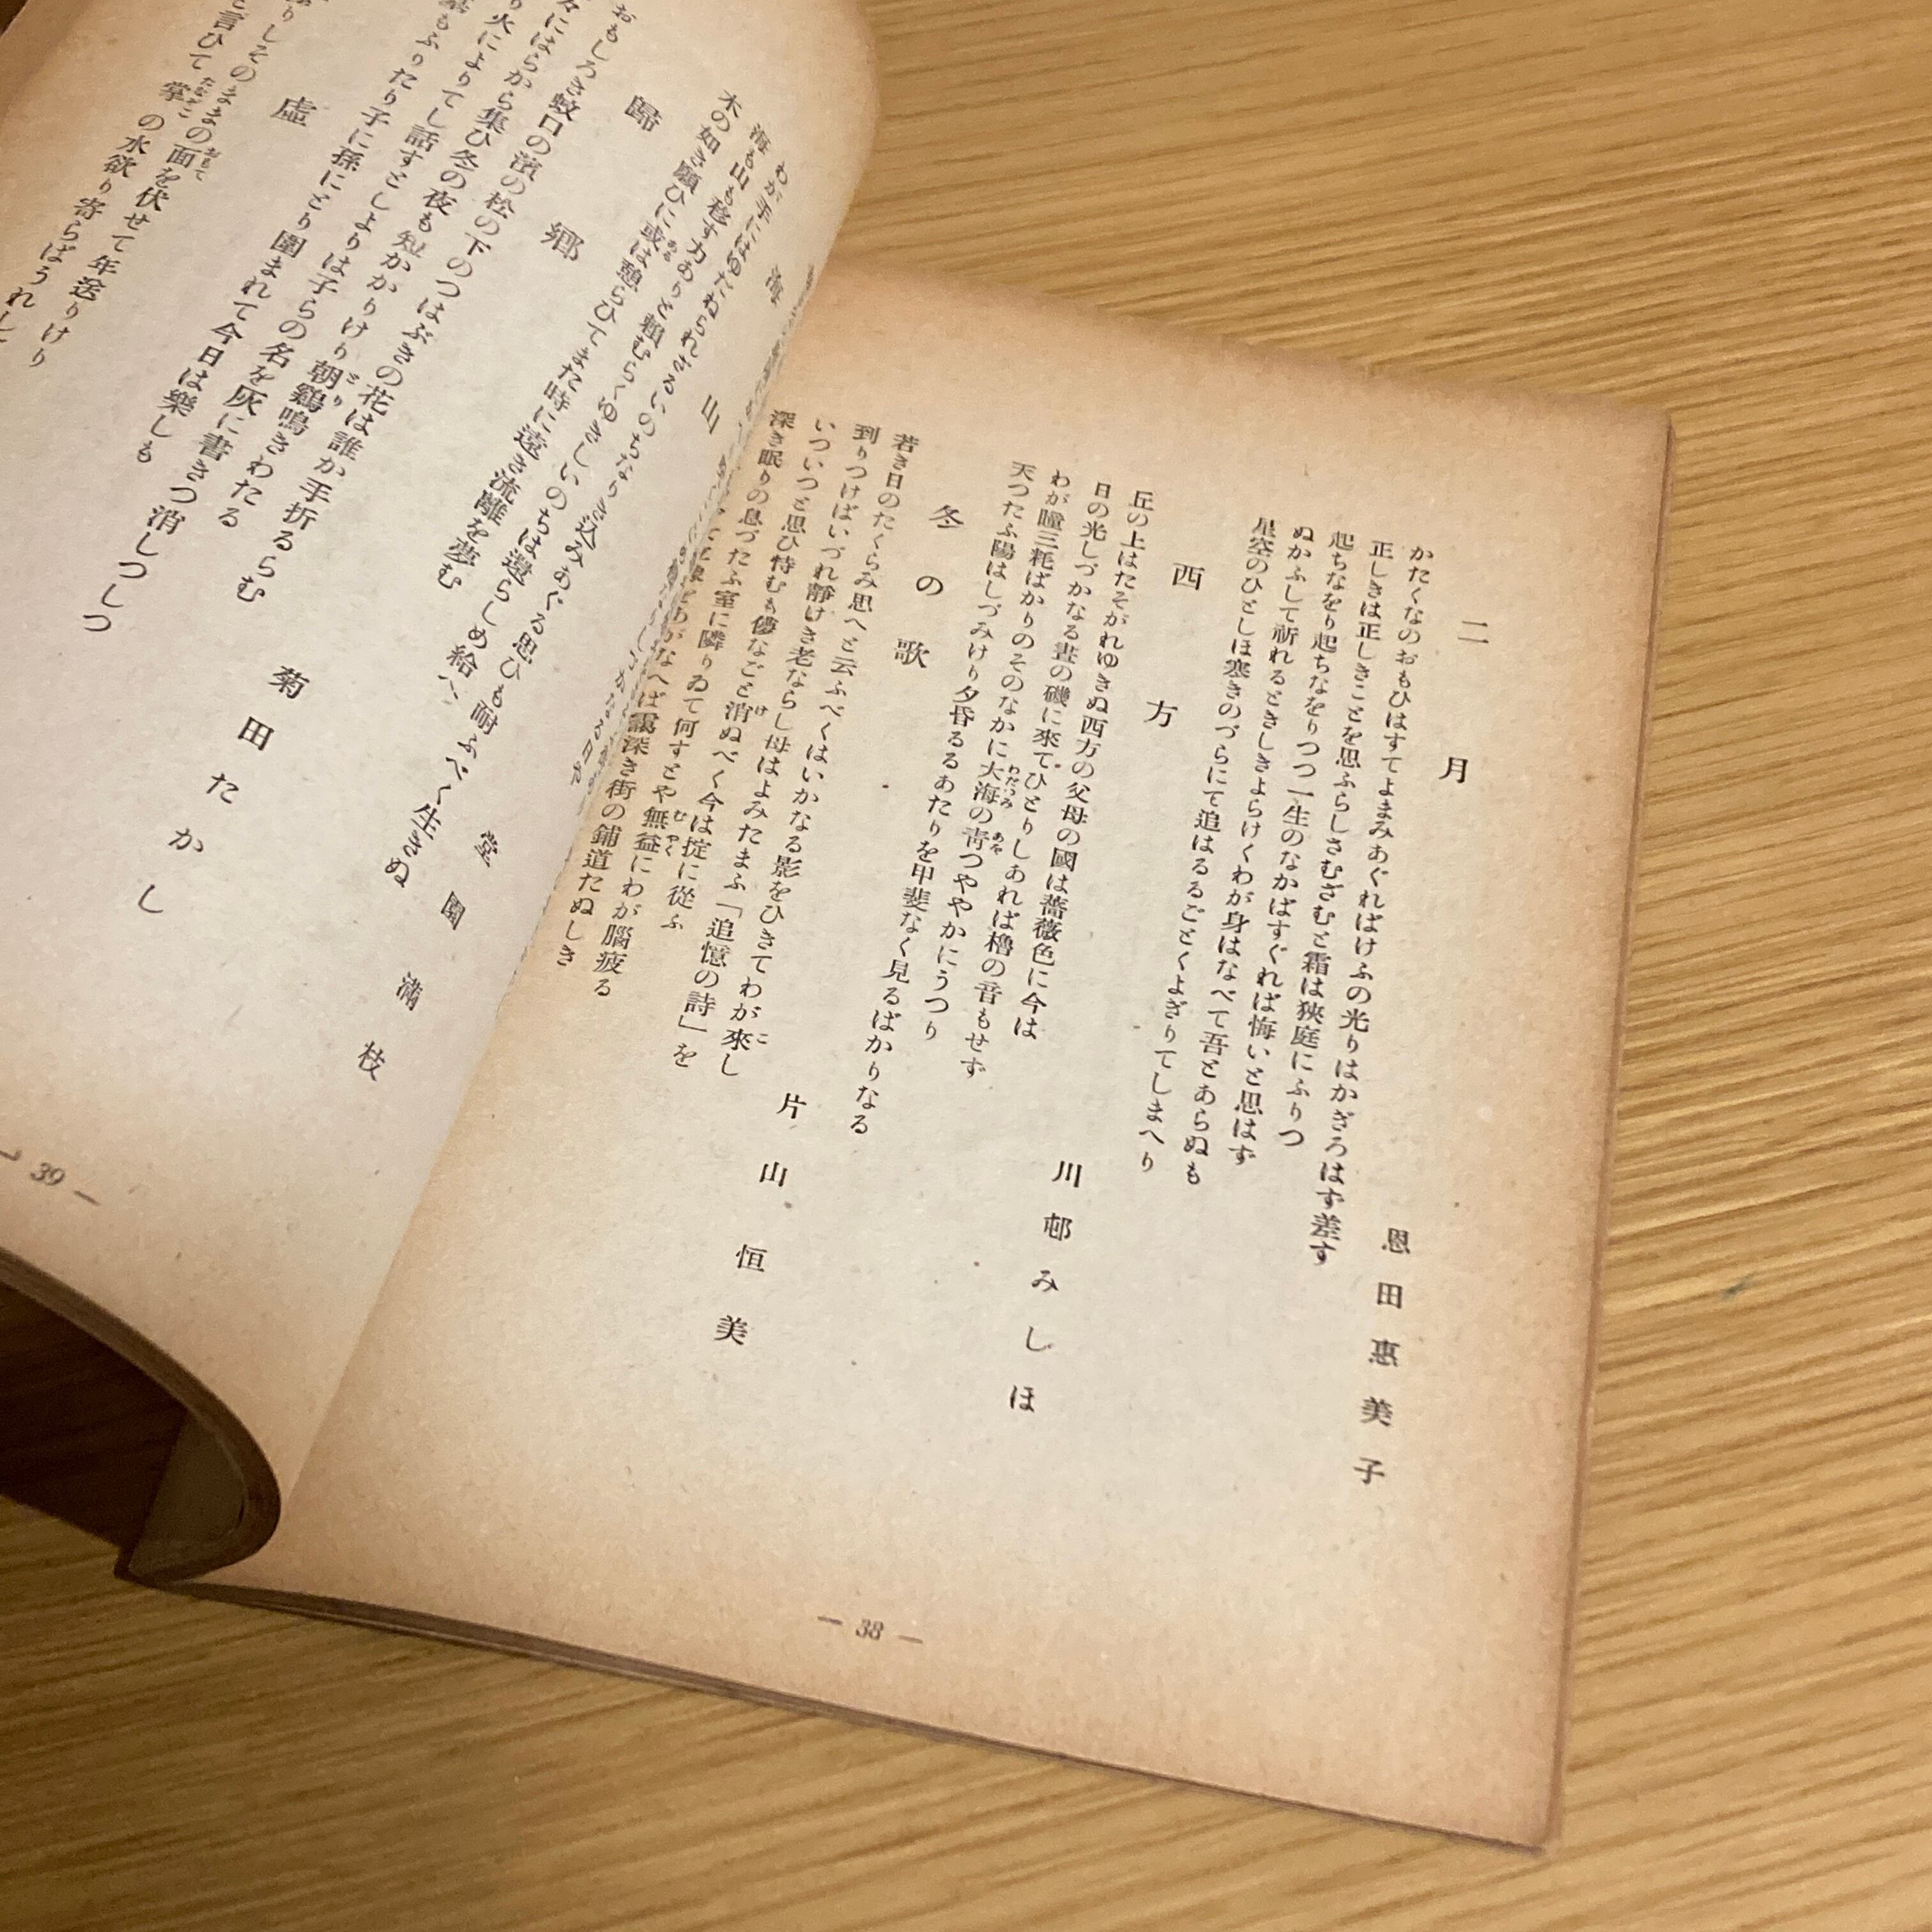 二月
恩田惠美子
かたくなのおもひはすてよまみあぐればけふの光りはかぎろはず差す
正しきは正しきことを思ふらしさむざむと霜は狹庭にふりつ
起ちなをり起ちなをりつつ一生のなかばすぐれば悔いと思はず
ぬかふして祈れるときしきよらけくわが身はなべて吾とあらぬも
星空のひとしほ寒きのづらにて追はるるごとくよぎりてしまへり
西方
川邨みしほ
丘の上はたそがれゆきぬ西方の父母の國は薔薇色に今は
日の光しづかなる晝の磯に來てひとりしあれば櫓の音もせず
わが瞳三粍ばかりのそのなかに大海の靑つややかにうつり
天つたふ陽はしづみけり夕昏るるあたりを甲斐なく見るばかりなる
冬の歌
片山恒美
若き日のたくらみ思へと云ふべくはいかなる影をひきてわが來し
到りつけばいづれ靜けき老ならし母はよみたまふ「追憶の詩」を
いついつと思ひ恃むも儚なごと消ぬべく今は掟に從ふ
深き眠りの息づたふ室に隣りゐて何すとや無益にわが腦疲る
わがなへば靄深き街の鋪道たぬしき
— 38 —
海山
堂園滿枝
わが手にはゆだねられざるいのちなりき込みあぐる思ひも耐ふべく生きぬ
海も山も移す力ありと賴むらくゆきしいのちは還らしめ給へ
木の如き願ひに或は憩らひてまた時に遠き流離を夢む
歸鄕
菊田たかし
おもしろき蚊口の濱の松の下のつはぶきの花は誰か手折るらむ
々にはらから集ひ冬の夜も短かかりけり朝鷄鳴きわたる
り火によりてし話すとしよりは子らの名を灰に書きつ消しつしつ
もふりたり子に孫にとり圍まれて今日は樂しも
虛
りしそのままの面を伏せて年送りけり
と言ひて掌の水欲り寄らばうれし
39 —